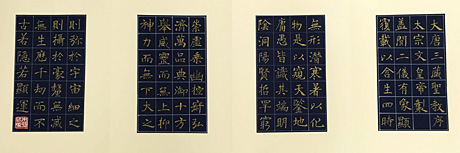 大唐三藏聖教序
太宗文皇帝製
蓋聞二儀有象顯
覆載以含生四時
無形潛寒暑以化
物是以窺天鑒地
庸愚皆識其端明
陰洞陽賢哲罕窮
崇虛乘幽控寂弘
濟萬品典御十方
舉威靈而無上抑
神力而無下大之
則彌於宇宙細之
則攝於毫釐無滅
無生歷千劫而不
古若隱若顯運